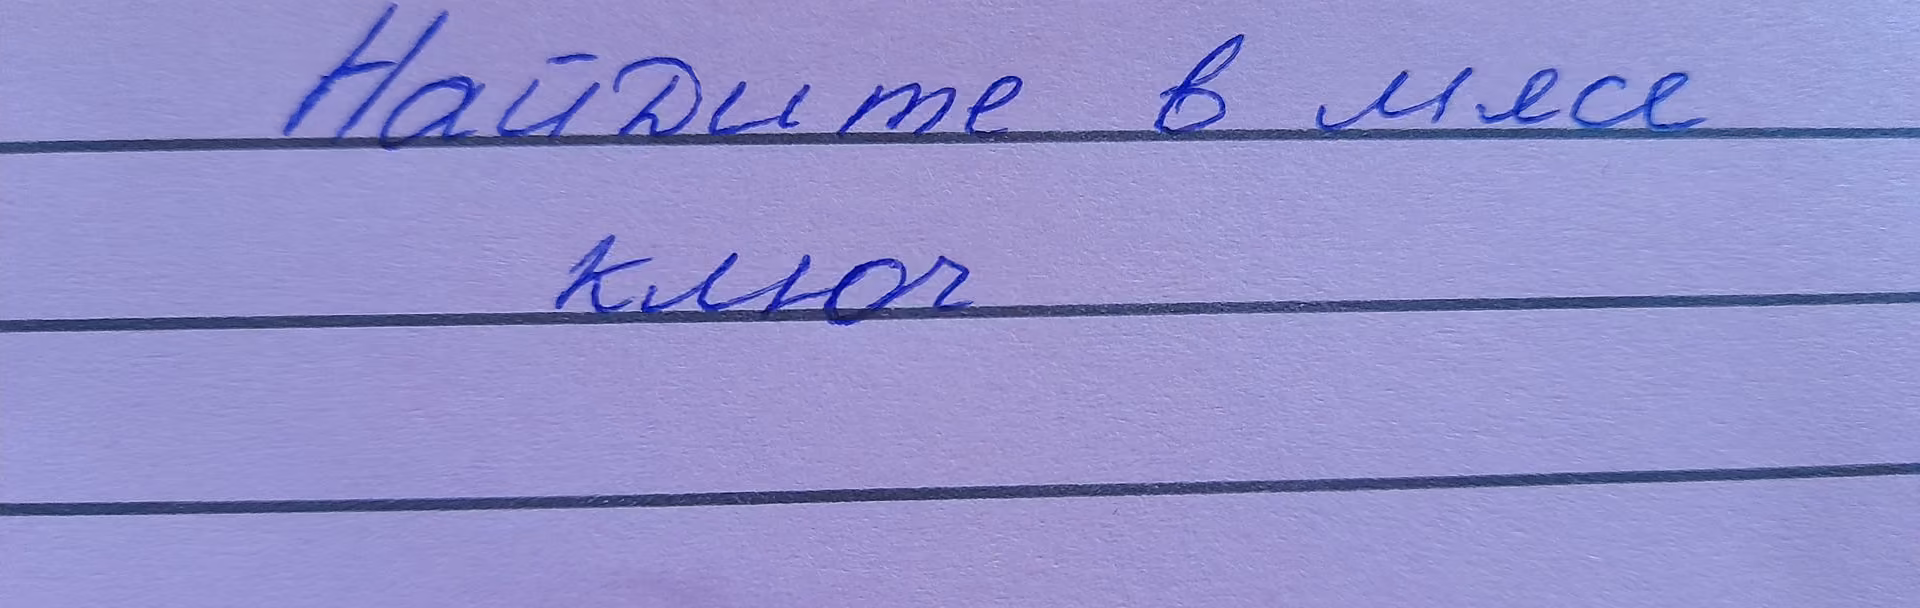 Найдите в мясе
ключ